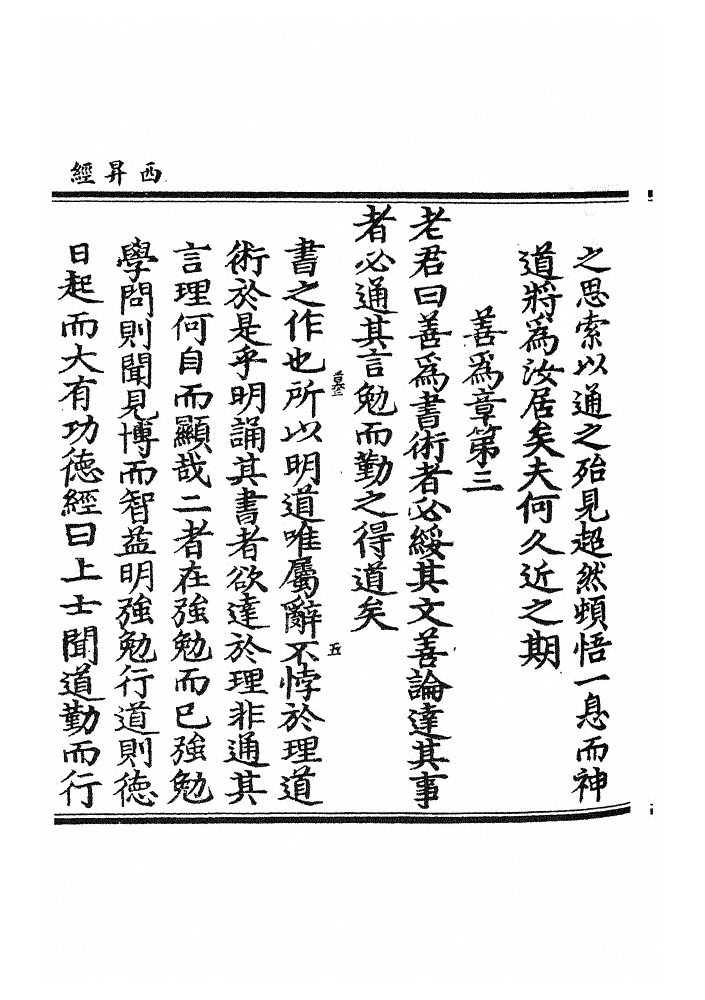 西昇經
之思索以通之殆見超然頓悟一息而神
道將為汝居矣夫何久近之期
善為章第三
老君曰善為書術者必綏其文善論達其事
者必通其言勉而勤之得道矣
書之作也所以明道唯屬辭不悖於理道
術於是乎明誦其書者欲達於理非通其
言理何自而顯哉二者在強勉而已強勉
學問則聞見博而智益明強勉行道則徳
日起而大有功徳經曰上士聞道勤而行
五